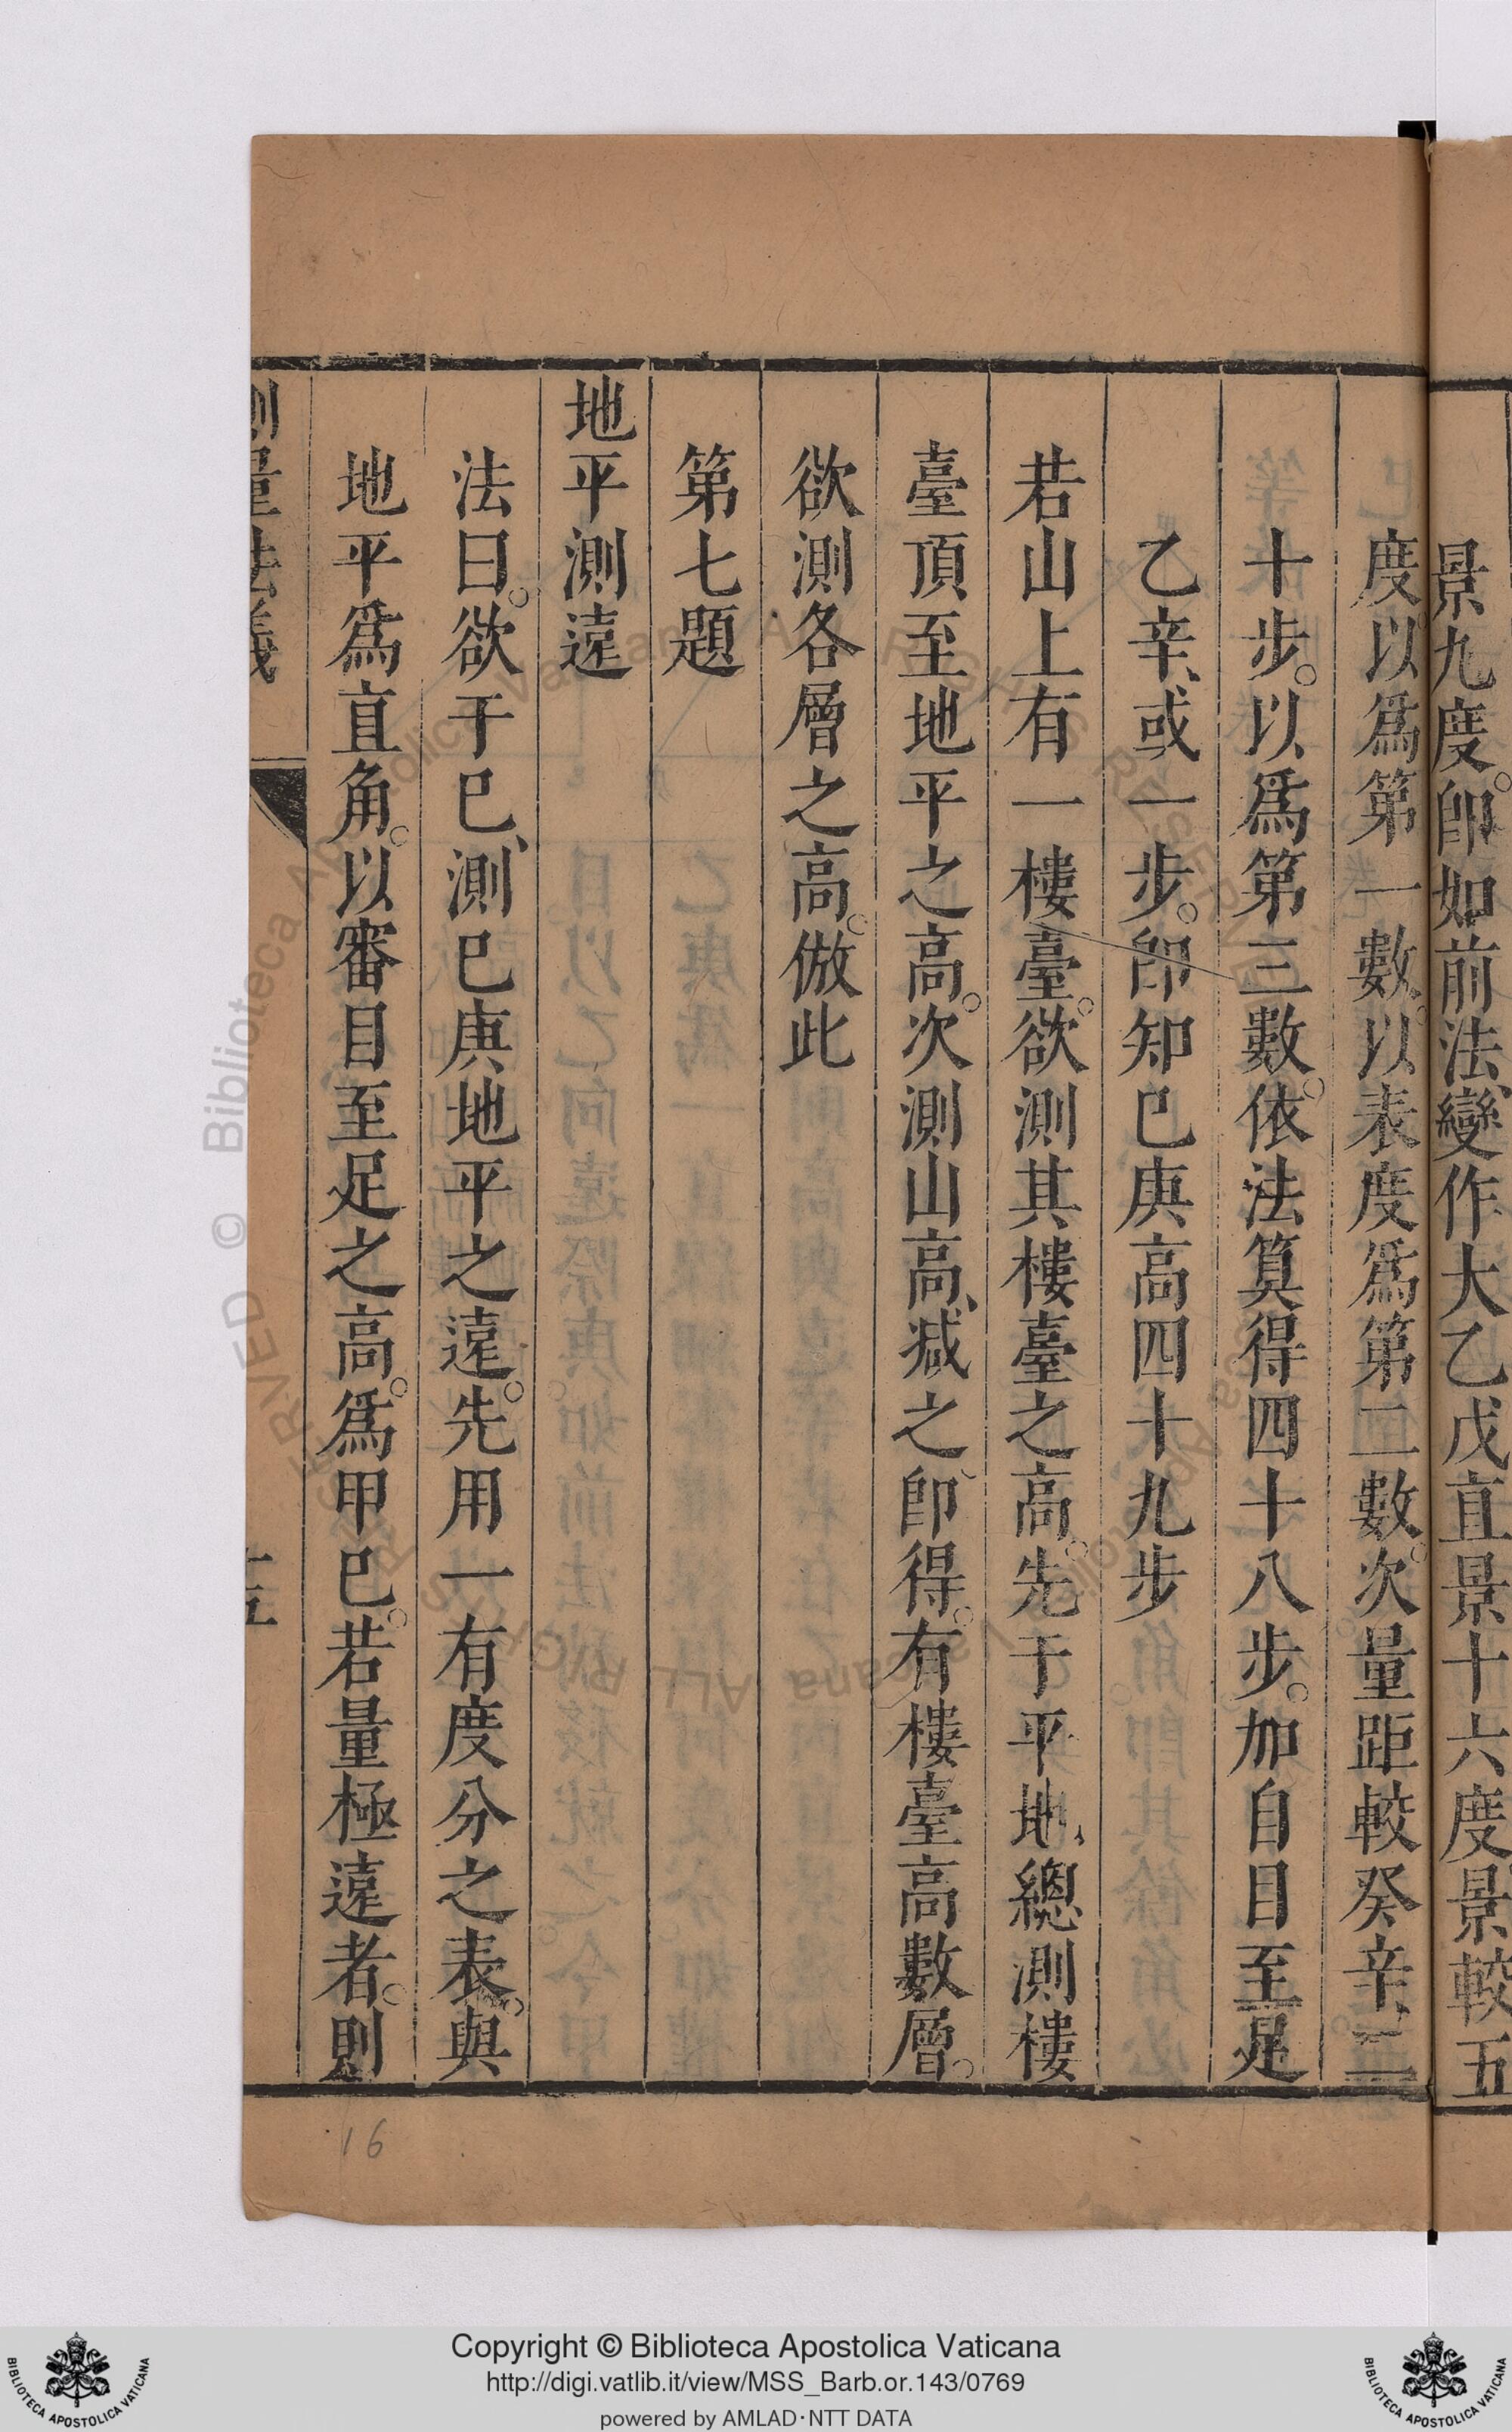 景九度。卽如前法、變作大乙戊直景十六度景較五
度。以爲第一數。以表度爲第二數。次量距較癸辛、二
十步。以爲第三數。依法算得四十八步。加自目至足
乙辛、或一步。卽知巳庚高四十九步
若山上有一樓臺。欲測其樓臺之高。先于平地、總測樓
臺頂至地平之高。次測山高、减之、卽得。有樓臺高數層。
欲測各層之高。倣此
第七題
地平測遠
法曰。欲于巳、測巳庚地平之遠。先用一有度分之表。與
地平爲直角。以審目至足之高。爲甲巳。若量極遠者。則
測量法義
十五
16
© Biblioteca Apostolica Vaticana ALL RIGHTS RESERVED
Copyright © Biblioteca Apostolica Vaticana
http://digi.vatlib.it/view/MSS_Barb.or.143/0769
powered by AMLAD·NTT DATA
BIBLIOTECA APOSTOLICA VATICANA
BIBLIOTECA APOSTOLICA VATICANA